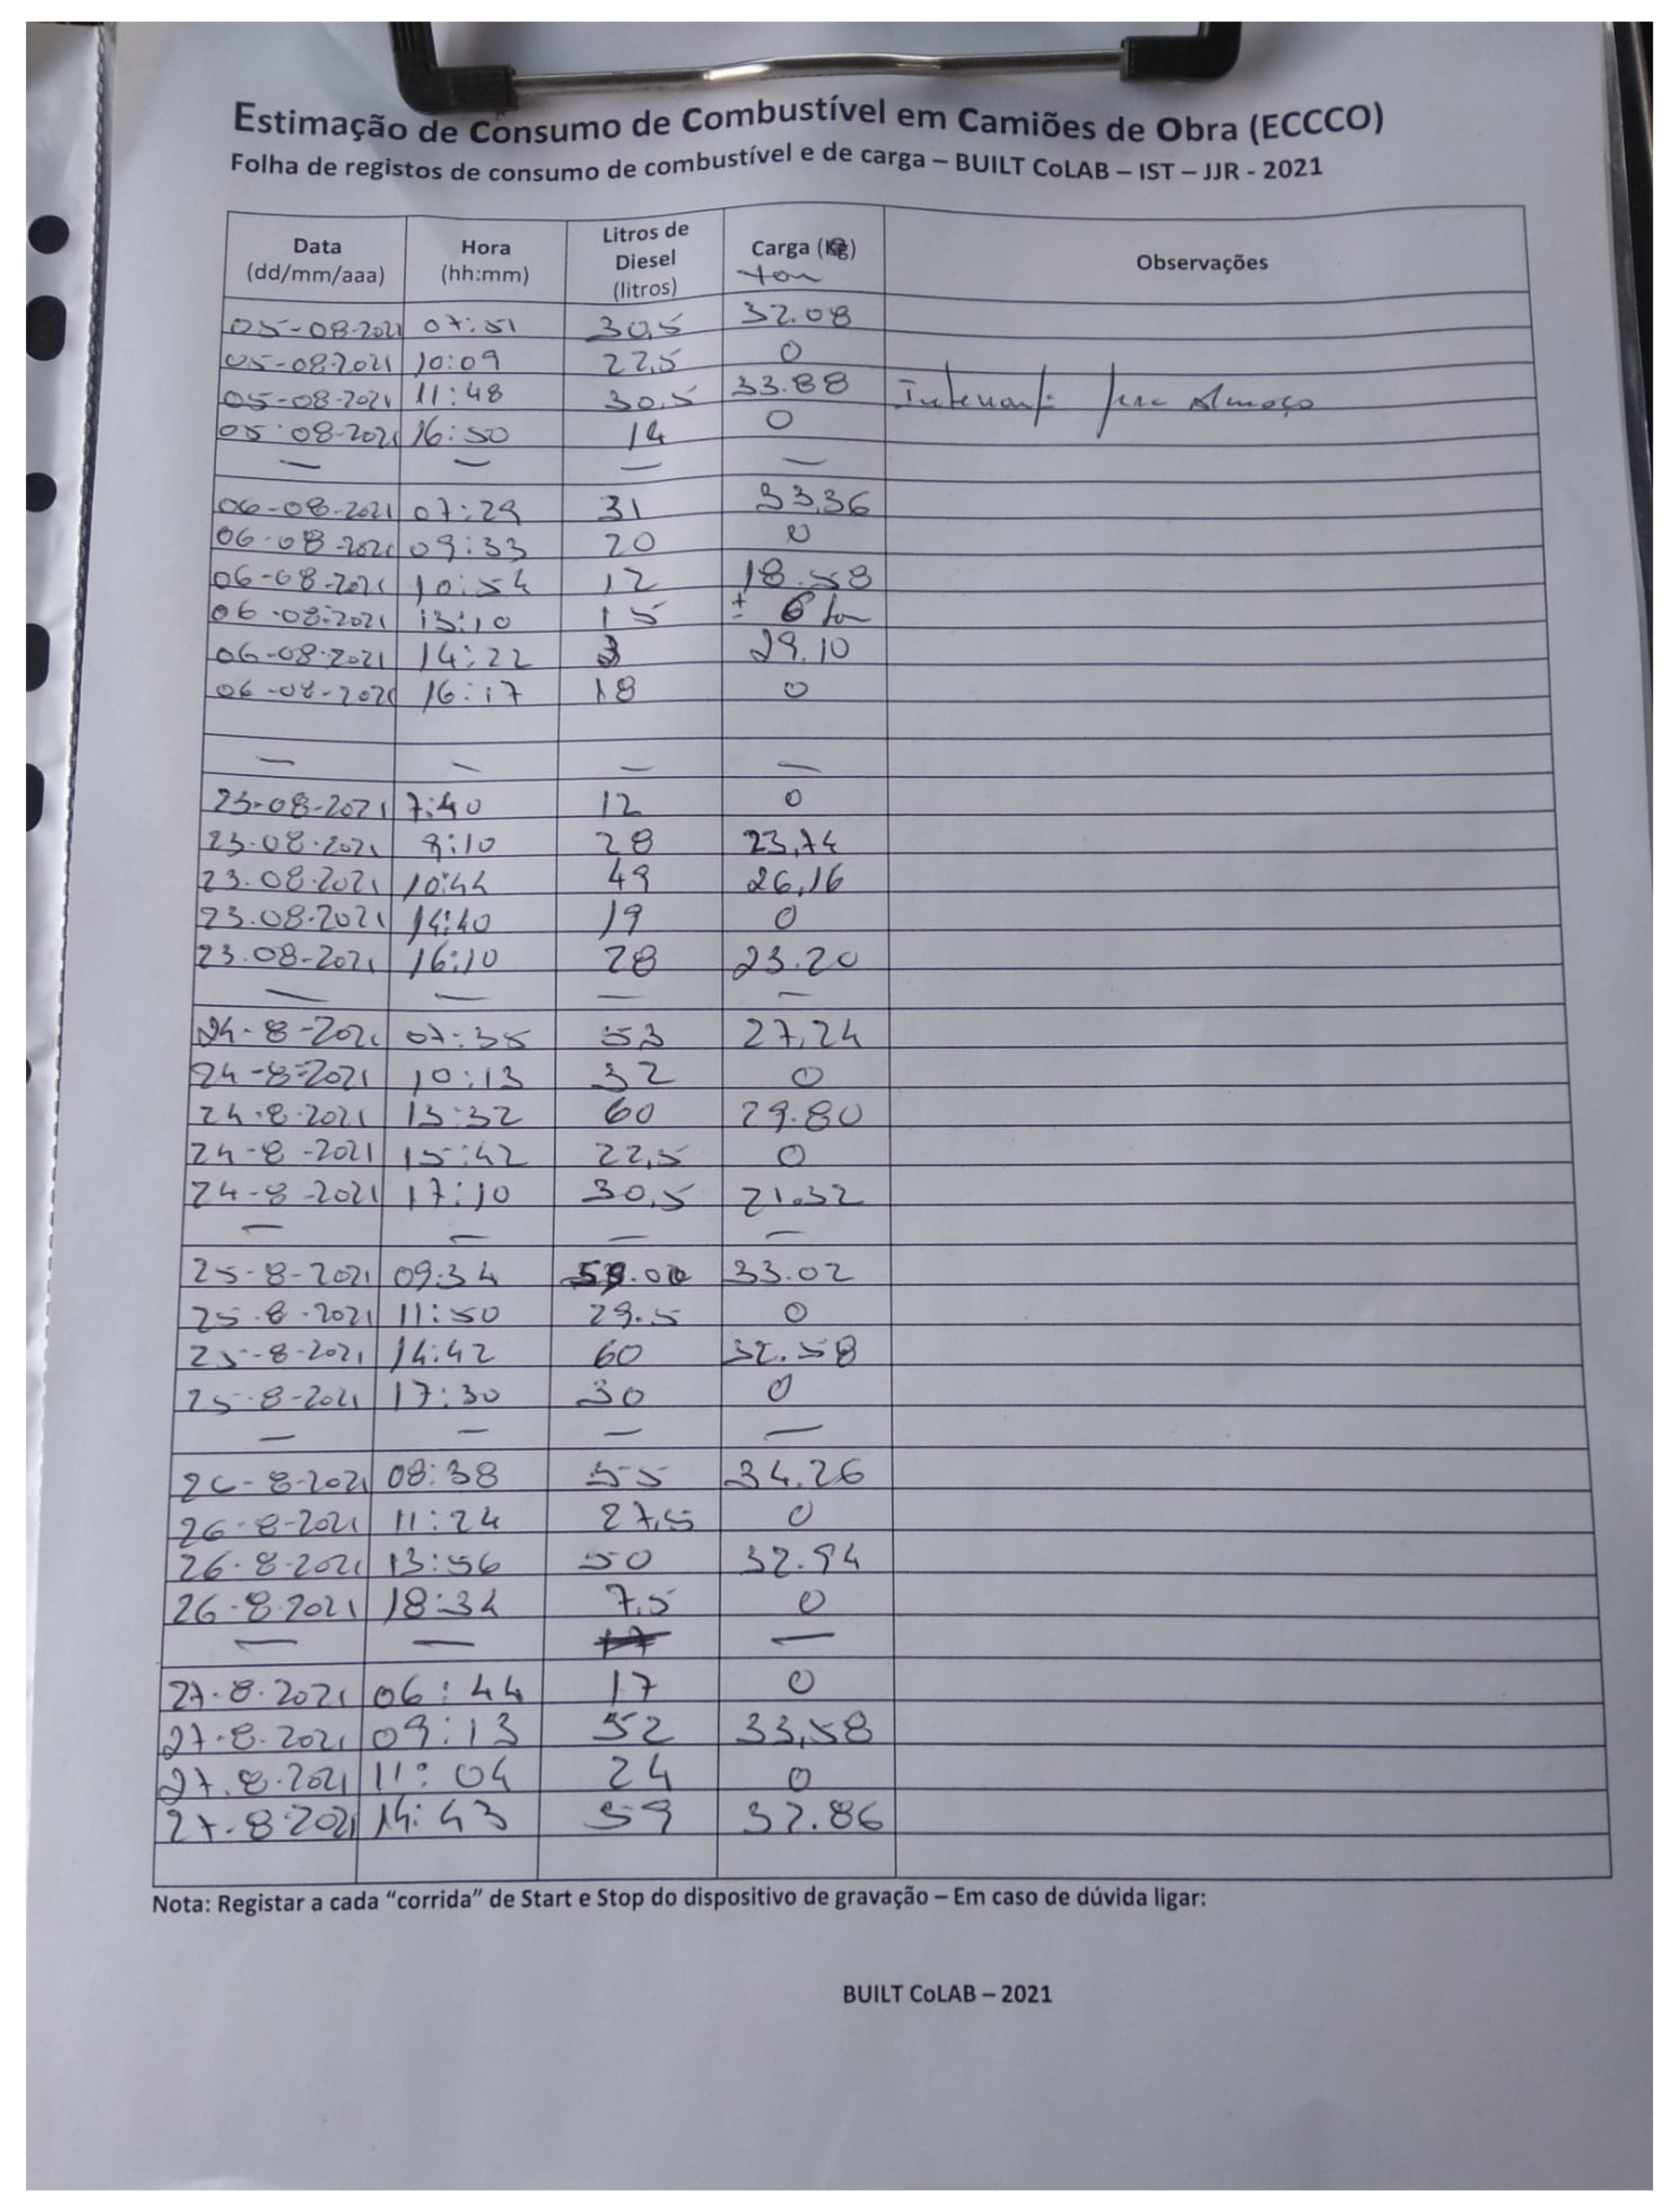 Estimação de Consumo de Combustível em Camiões de Obra (ECCCO)
Folha de registos de consumo de combustível e de carga – BUILT CoLAB – IST – JJR - 2021
Data (dd/mm/aaa) Hora (hh:mm) Litros de Diesel (litros) Carga (Kg) ton Observações
05-08-2021 07:51 30,5 32.08
05-08-2021 10:09 22,5 0
05-08-2021 11:48 30,5 33.88 Almoço
05-08-2021 16:50 14 0
— — — —
06-08-2021 07:29 31 33,36
06-08-2021 09:33 20 0
06-08-2021 10:54 12 18.58
06-08-2021 13:10 15 ± 6 ton
06-08-2021 14:22 3 29.10
06-08-2021 16:17 18 0
— — — —
23-08-2021 7:40 12 0
23.08.2021 8:10 28 23,74
23.08.2021 10:44 49 26,16
23.08.2021 14:40 19 0
23.08-2021 16:10 28 23.20
— — — —
24-8-2021 07:35 53 27,24
24-8-2021 10:13 32 0
24.8.2021 13:32 60 29.80
24-8-2021 15:42 22,5 0
24-8-2021 17:10 30,5 21.32
— — — —
25-8-2021 09:34 33.02
25.8.2021 11:50 29.5 0
25-8-2021 14:42 60 32.58
25-8-2021 17:30 30 0
— — — —
26-8-2021 08:38 55 34.26
26-8-2021 11:24 27,5 0
26.8.2021 13:56 50 32.94
26-8.2021 18:34 7,5 0
— — 17 —
27.8.2021 06:44 17 0
27.8.2021 09:13 52 33,58
27.8.2021 11:04 24 0
27.8.2021 14:43 59 32.86
Nota: Registar a cada “corrida” de Start e Stop do dispositivo de gravação – Em caso de dúvida ligar:
BUILT CoLAB – 2021